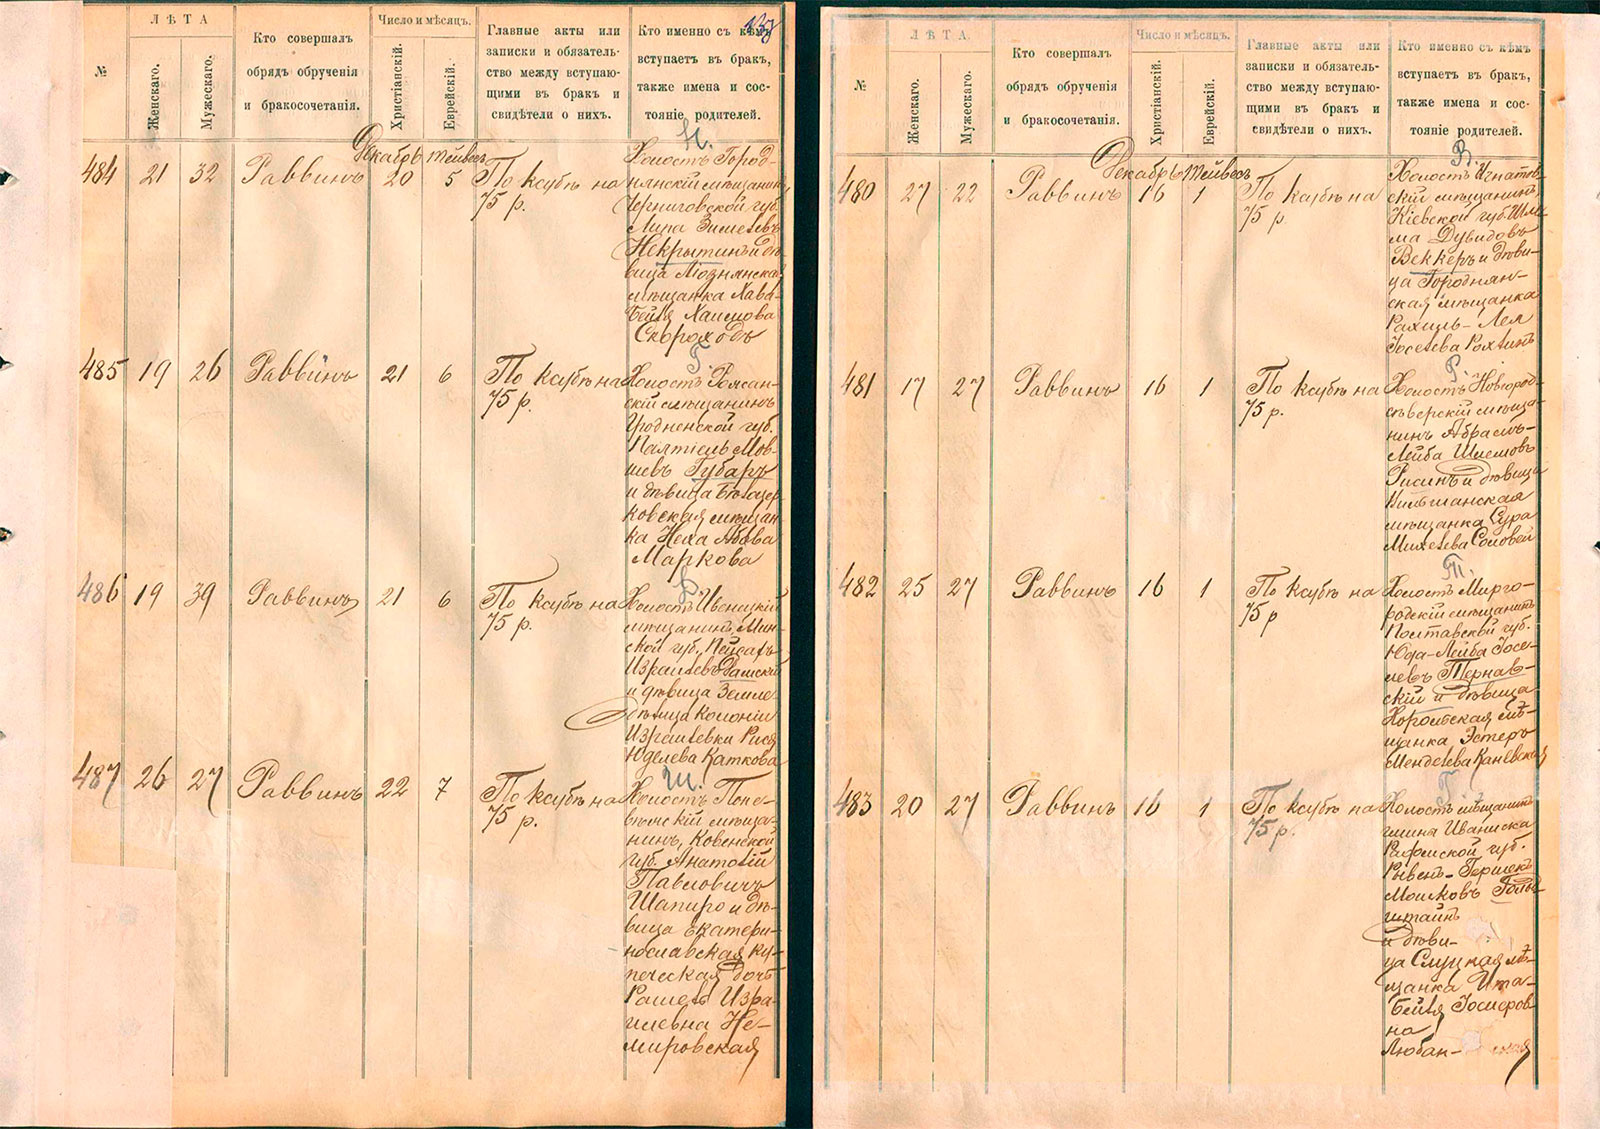 137
№
ЛѢТА
Женскаго.
Мужескаго.
Кто совершалъ
обрядъ обрученія
и бракосочетанія.
Число и мѣсяцъ.
Христіанскій.
Еврейскій.
Главные акты или
записки и обязатель-
ство между вступаю-
щими въ бракъ и
свидѣтели о нихъ.
Кто именно съ кѣмъ
вступаетъ въ бракъ,
также имена и сос-
тояніе родителей.
Декабрь Тейвесъ
484 21 32 Раввинъ 20 5 По ксубѣ на
75 р.
Н.
Холостъ Город-
нянскій мѣщанинъ,
Черниговской губ.
Липа Зиселевъ
Некрытинъ и дѣ-
вица Лiознянская
мѣщанка Хава-
Бейля Хаимова
Скороходъ
485 19 26 Раввинъ 21 6 По ксубѣ на
75 р.
Г.
Холостъ Рожан-
скій мѣщанинъ
Гродненской губ.
Палтіель Мов-
шевъ Губаръ
и дѣвица Бѣлацер-
ковская мѣщан-
ка Неха Абова
Маркова
486 19 39 Раввинъ 21 6 По ксубѣ на
75 р.
Д.
Холостъ Ивенецкій
мѣщанинъ Мин-
ской губ. Пейсахъ
Израилевъ Дамскій
и дѣвица Земле-
дѣлица колоніи
Израилевки Рися
Юделева Каткова
487 26 27 Раввинъ 22 7 По ксубѣ на
75 р.
Ш.
Холостъ Поне-
вѣжскій мѣща-
нинъ, Ковенской
губ. Анатолій
Павловичъ
Шапиро и дѣ-
вица Екатери-
нославская ку-
печеская дочь
Рашель Изра-
илевна Не-
мировская
№
ЛѢТА.
Женскаго.
Мужескаго.
Кто совершалъ
обрядъ обрученія
и бракосочетанія.
Число и мѣсяцъ.
Христіанскій.
Еврейскій.
Главные акты или
записки и обязатель-
ство между вступаю-
щими въ бракъ и
свидѣтели о нихъ.
Кто именно съ кѣмъ
вступаетъ въ бракъ,
также имена и сос-
тояніе родителей.
Декабрь Тейвесъ
480 27 22 Раввинъ 16 1 По ксубѣ на
75 р.
В.
Холостъ Игнатов-
скій мѣщанинъ,
Кіевской губ. Шли-
ма Дувидовъ
Веккеръ и дѣви-
ца Городнян-
ская мѣщанка
Рахиль-Лея
Іоселева Рохлинъ
481 17 27 Раввинъ 16 1 По ксубѣ на
75 р.
Р.
Холостъ Новгород-
сѣверскій мѣща-
нинъ Абрамъ-
Лейба Шлемовъ
Рисинъ и дѣвица
Вильшанская
мѣщанка Сура
Михелева Соловей
482 25 27 Раввинъ 16 1 По ксубѣ на
75 р
Т.
Холостъ Мирго-
родскій мѣщанинъ
Полтавской губ.
Юда-Лейба Іосе-
левъ Тернав-
скій и дѣвица
Хорольская мѣ-
щанка Эстеръ
Менделева Каневская
483 20 27 Раввинъ 16 1 По ксубѣ на
75 р.
Г.
Холостъ мѣщанинъ
гмины Иваниска
Радомской губ.
Рывенъ-Гершекъ
Мошковъ Голь-
штайнъ
и дѣви-
ца Слуцкая мѣ-
щанка Ита-
Бейля Іосиеров-
на
Любан-ская